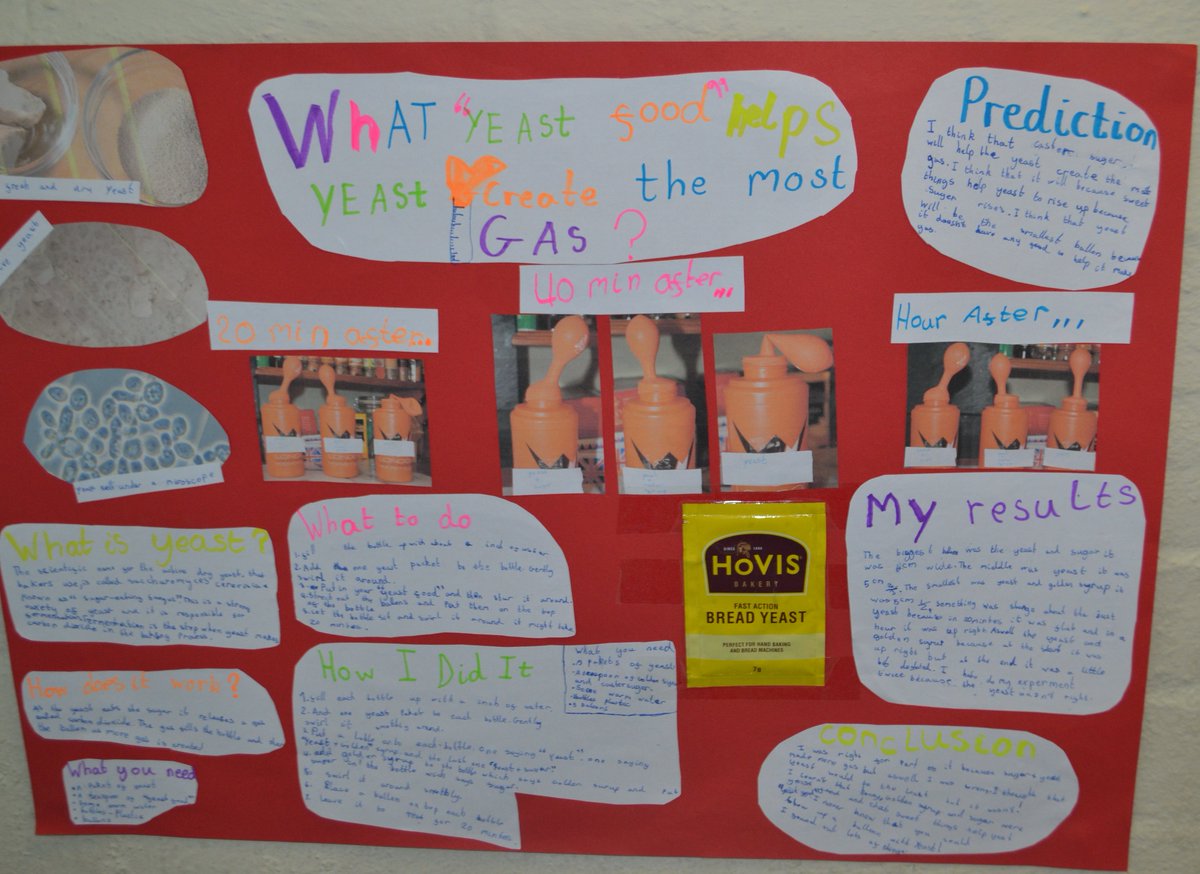 WhAT "YEAST food" helps
YEAST Create the most
GAS?
Prediction
I think that caster sugar
will help the yeast create the most
gas. I think that it will because sweet
things help yeast to rise up because
sugar rises. I think that yeast
will be the smallest ballon because
it doesn't have any food to help it make
gas.
and dry yeast
20 min after...
40 min after...
Hour After...
yeast cell under a microscope
What is yeast?
The scientific name for the active dry yeast that
bakers use is called saccharomyces
known as "sugar-eating fungus". This is a strong
variety of yeast and it is responsible for
fermentation is the step when yeast makes
carbon dioxide in the baking process.
How does it work?
As the yeast eats the sugar it releases a gas
called carbon dioxide. The gas fills the bottle and then
the ballon as more gas is created
What you need
packet of yeast
"yeast food"
Some warm water
Plastic
ballons
What to do
the bottle up with about a inch of water
2. Add the one yeast packet to the bottle. Gently
swirl it around.
3. Put in your "yeast food" and then stir it around.
of the bottle ballons and Put them on the top
5. Let the bottle sit and swirl it around it might take
20 minutes.
How I Did It
1. fill each bottle up with a inch of water.
2. And one yeast Packet to each bottle. Gently
swirl it around.
3. Put a lable onto each bottle. One saying "yeast". one saying
syrup and the last one "yeast + sugar".
4. add golden syrup to the bottle which says golden syrup and Put
sugar in the bottle which says sugar.
5. swirl it around
6. Place a ballon on top each bottle
7. leave it to rest for 20 minutes.
What you need
packets of yeast
golden syrup
and caster sugar.
Some warm water
bottles plastic
ballons
SINCE 1886
HOVIS
BAKERY
FAST ACTION
BREAD YEAST
PERFECT FOR HAND BAKING
AND BREAD MACHINES
7g
My results
The biggest was the yeast and sugar it
was cm wide. The middle was yeast it was
The smallest one yeast and golden syrup it
was something was strange about the just
yeast because in 20 minutes it was flat and in a
hour it was up right. Aswell the yeast and
golden syrup because at the start it was
up right but at the end it was a little
bit deflated. I had to do my experiment
twice because the yeast wasn't right.
Conclusion
I was right for Part of it because sugar
made more gas but aswell I was wrong. I thought that
yeast would be the last but it wasn't!
I learnt that golden syrup and sugar were
and that sweet things help yeast
I never knew that you could
blow up a balloon with yeast!
I found out lots of things